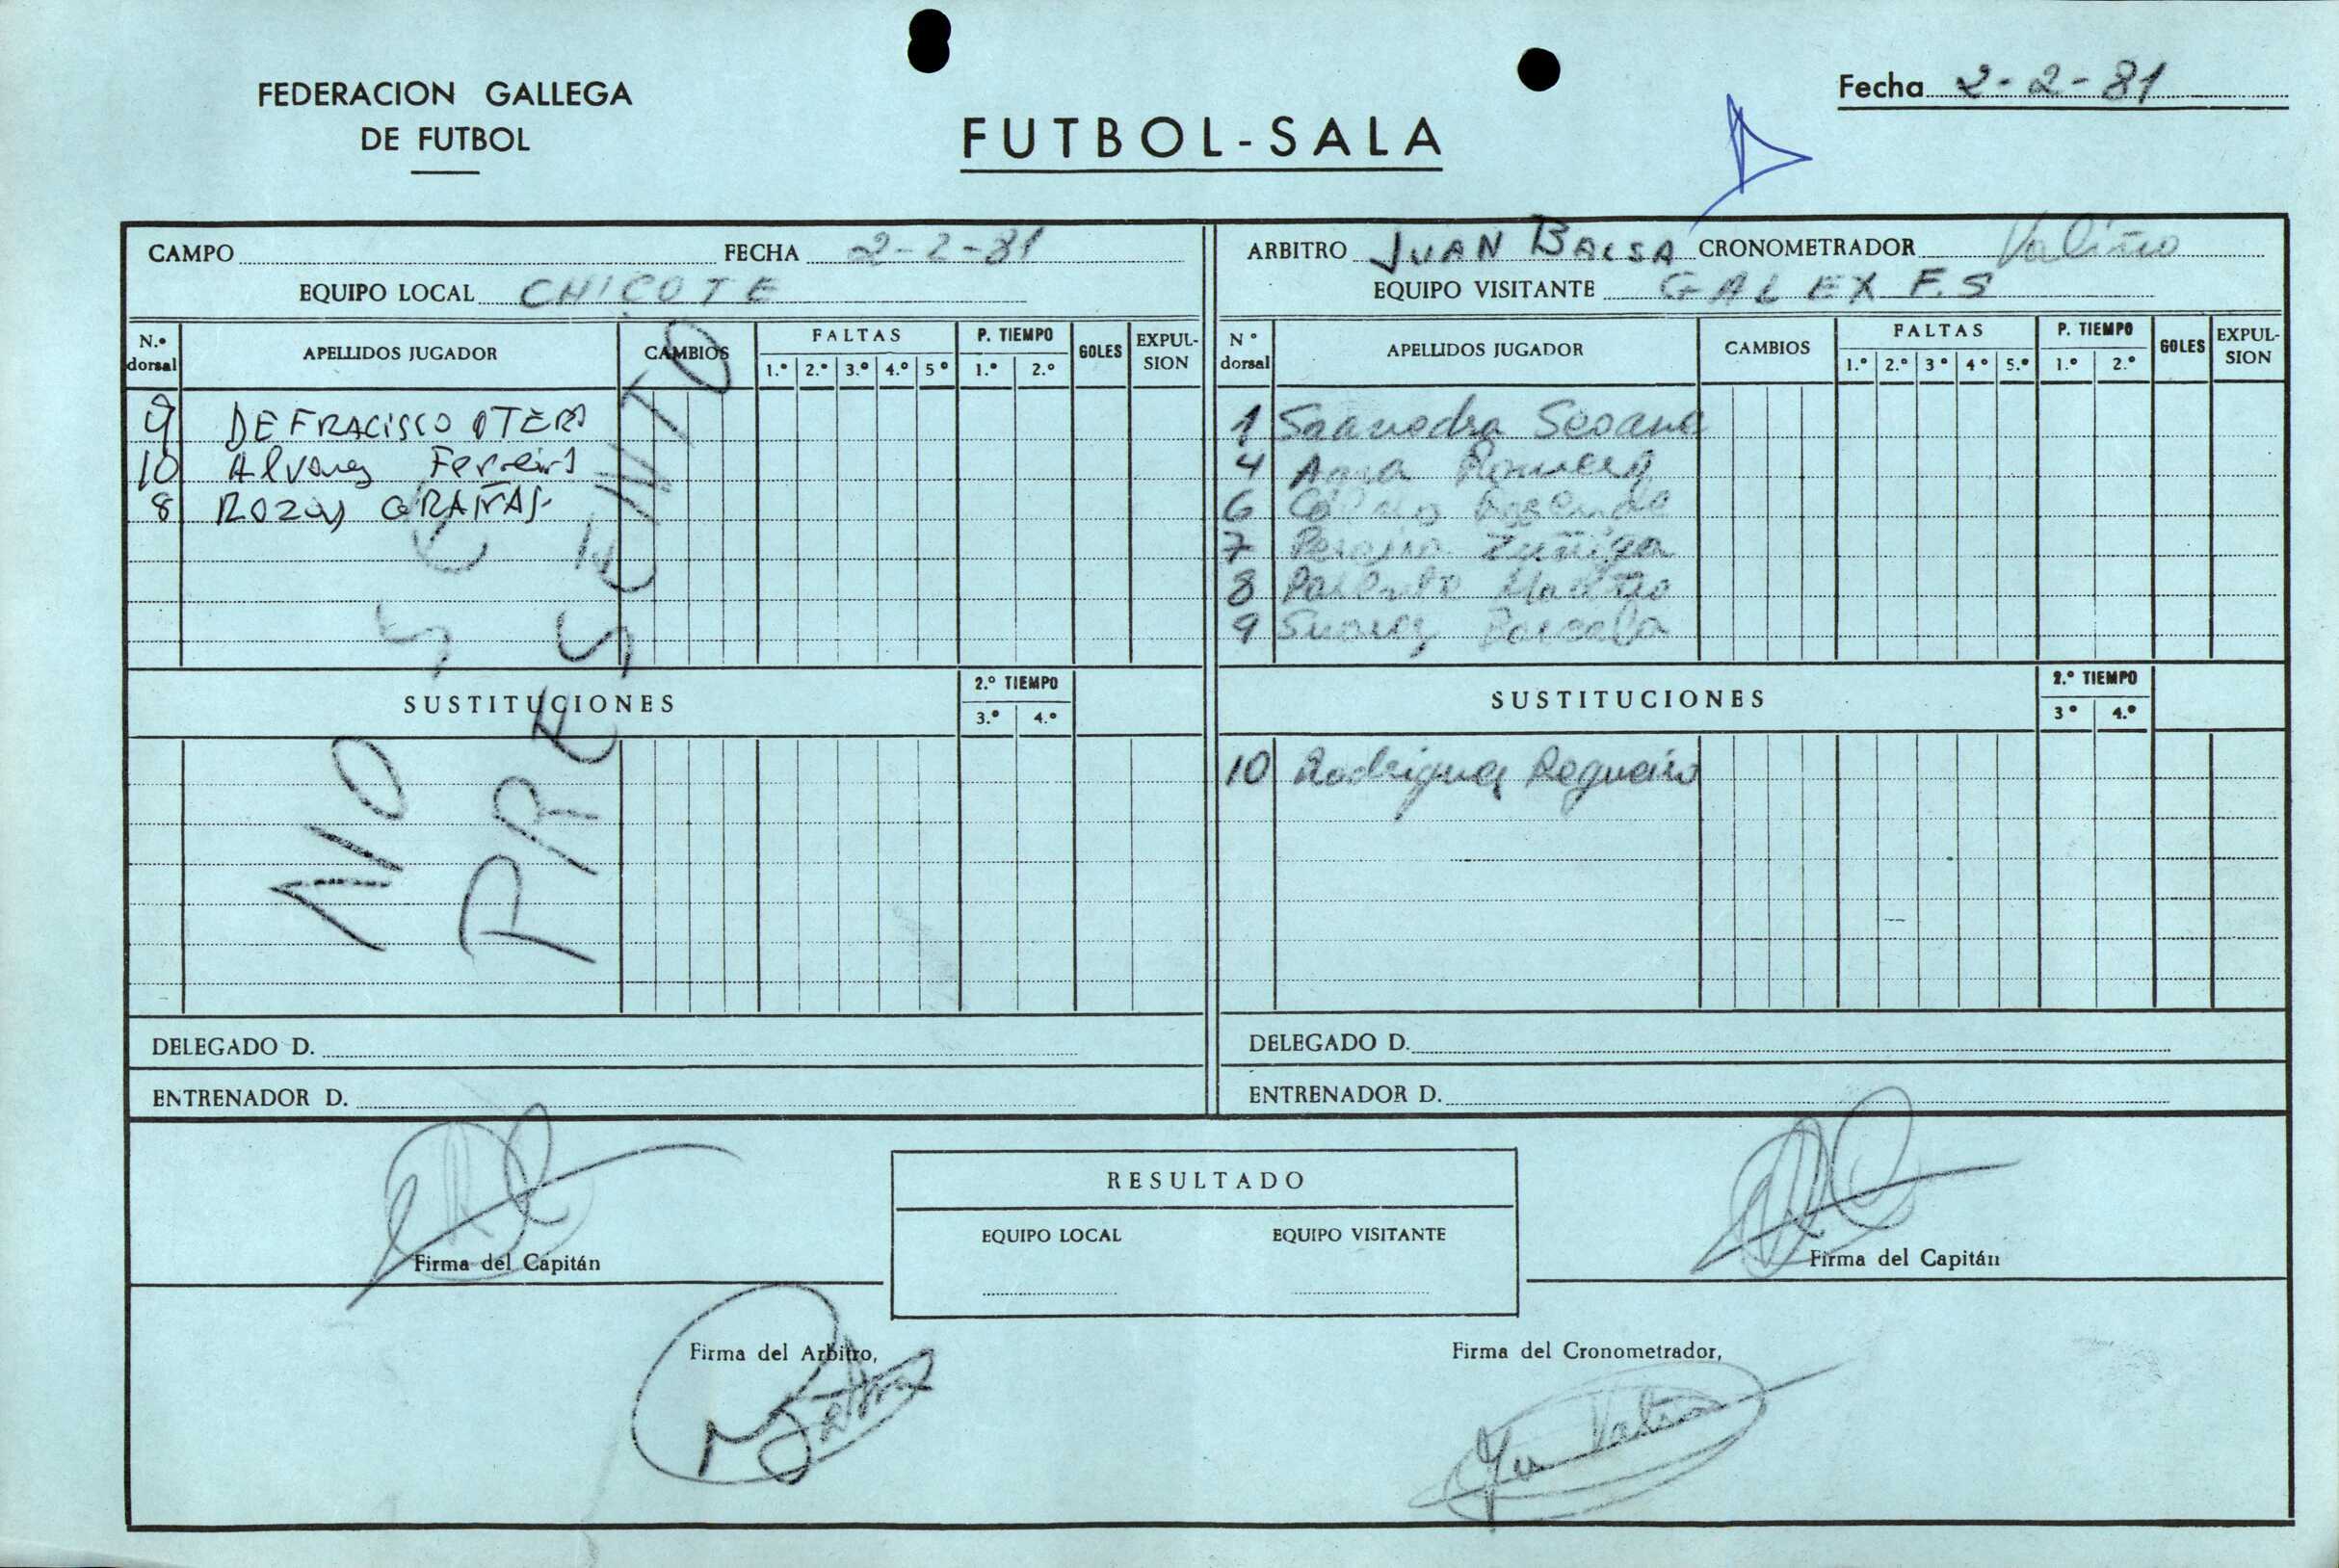 FEDERACION GALLEGA
DE FUTBOL
FUTBOL-SALA
Fecha 2-2-81
CAMPO FECHA 2-2-81
EQUIPO LOCAL CHICOTE
N.º dorsal APELLIDOS JUGADOR CAMBIOS FALTAS 1.º 2.º 3.º 4.º 5º P. TIEMPO 1.º 2.º GOLES EXPULSION
9 DE FRACISCO OTERO
10 Alvarez Ferreiro
8 ROZAS GRAÑAS
NO SE
PRESENTO
SUSTITUCIONES 2.º TIEMPO 3.º 4.º
DELEGADO D.
ENTRENADOR D.
ARBITRO JUAN BALSA CRONOMETRADOR Valiño
EQUIPO VISITANTE GALEX F.S
Nº dorsal APELLIDOS JUGADOR CAMBIOS FALTAS 1.º 2.º 3º 4º 5.º P. TIEMPO 1.º 2.º GOLES EXPULSION
1 Saavedra Seoane
4 Romero
6
7 Zuñiga
8
9 Suarez
SUSTITUCIONES 2.º TIEMPO 3º 4.º
10 Rodriguez Regueiro
DELEGADO D.
ENTRENADOR D.
Firma del Capitán
RESULTADO
EQUIPO LOCAL EQUIPO VISITANTE
Firma del Capitán
Firma del Arbitro,
Firma del Cronometrador,